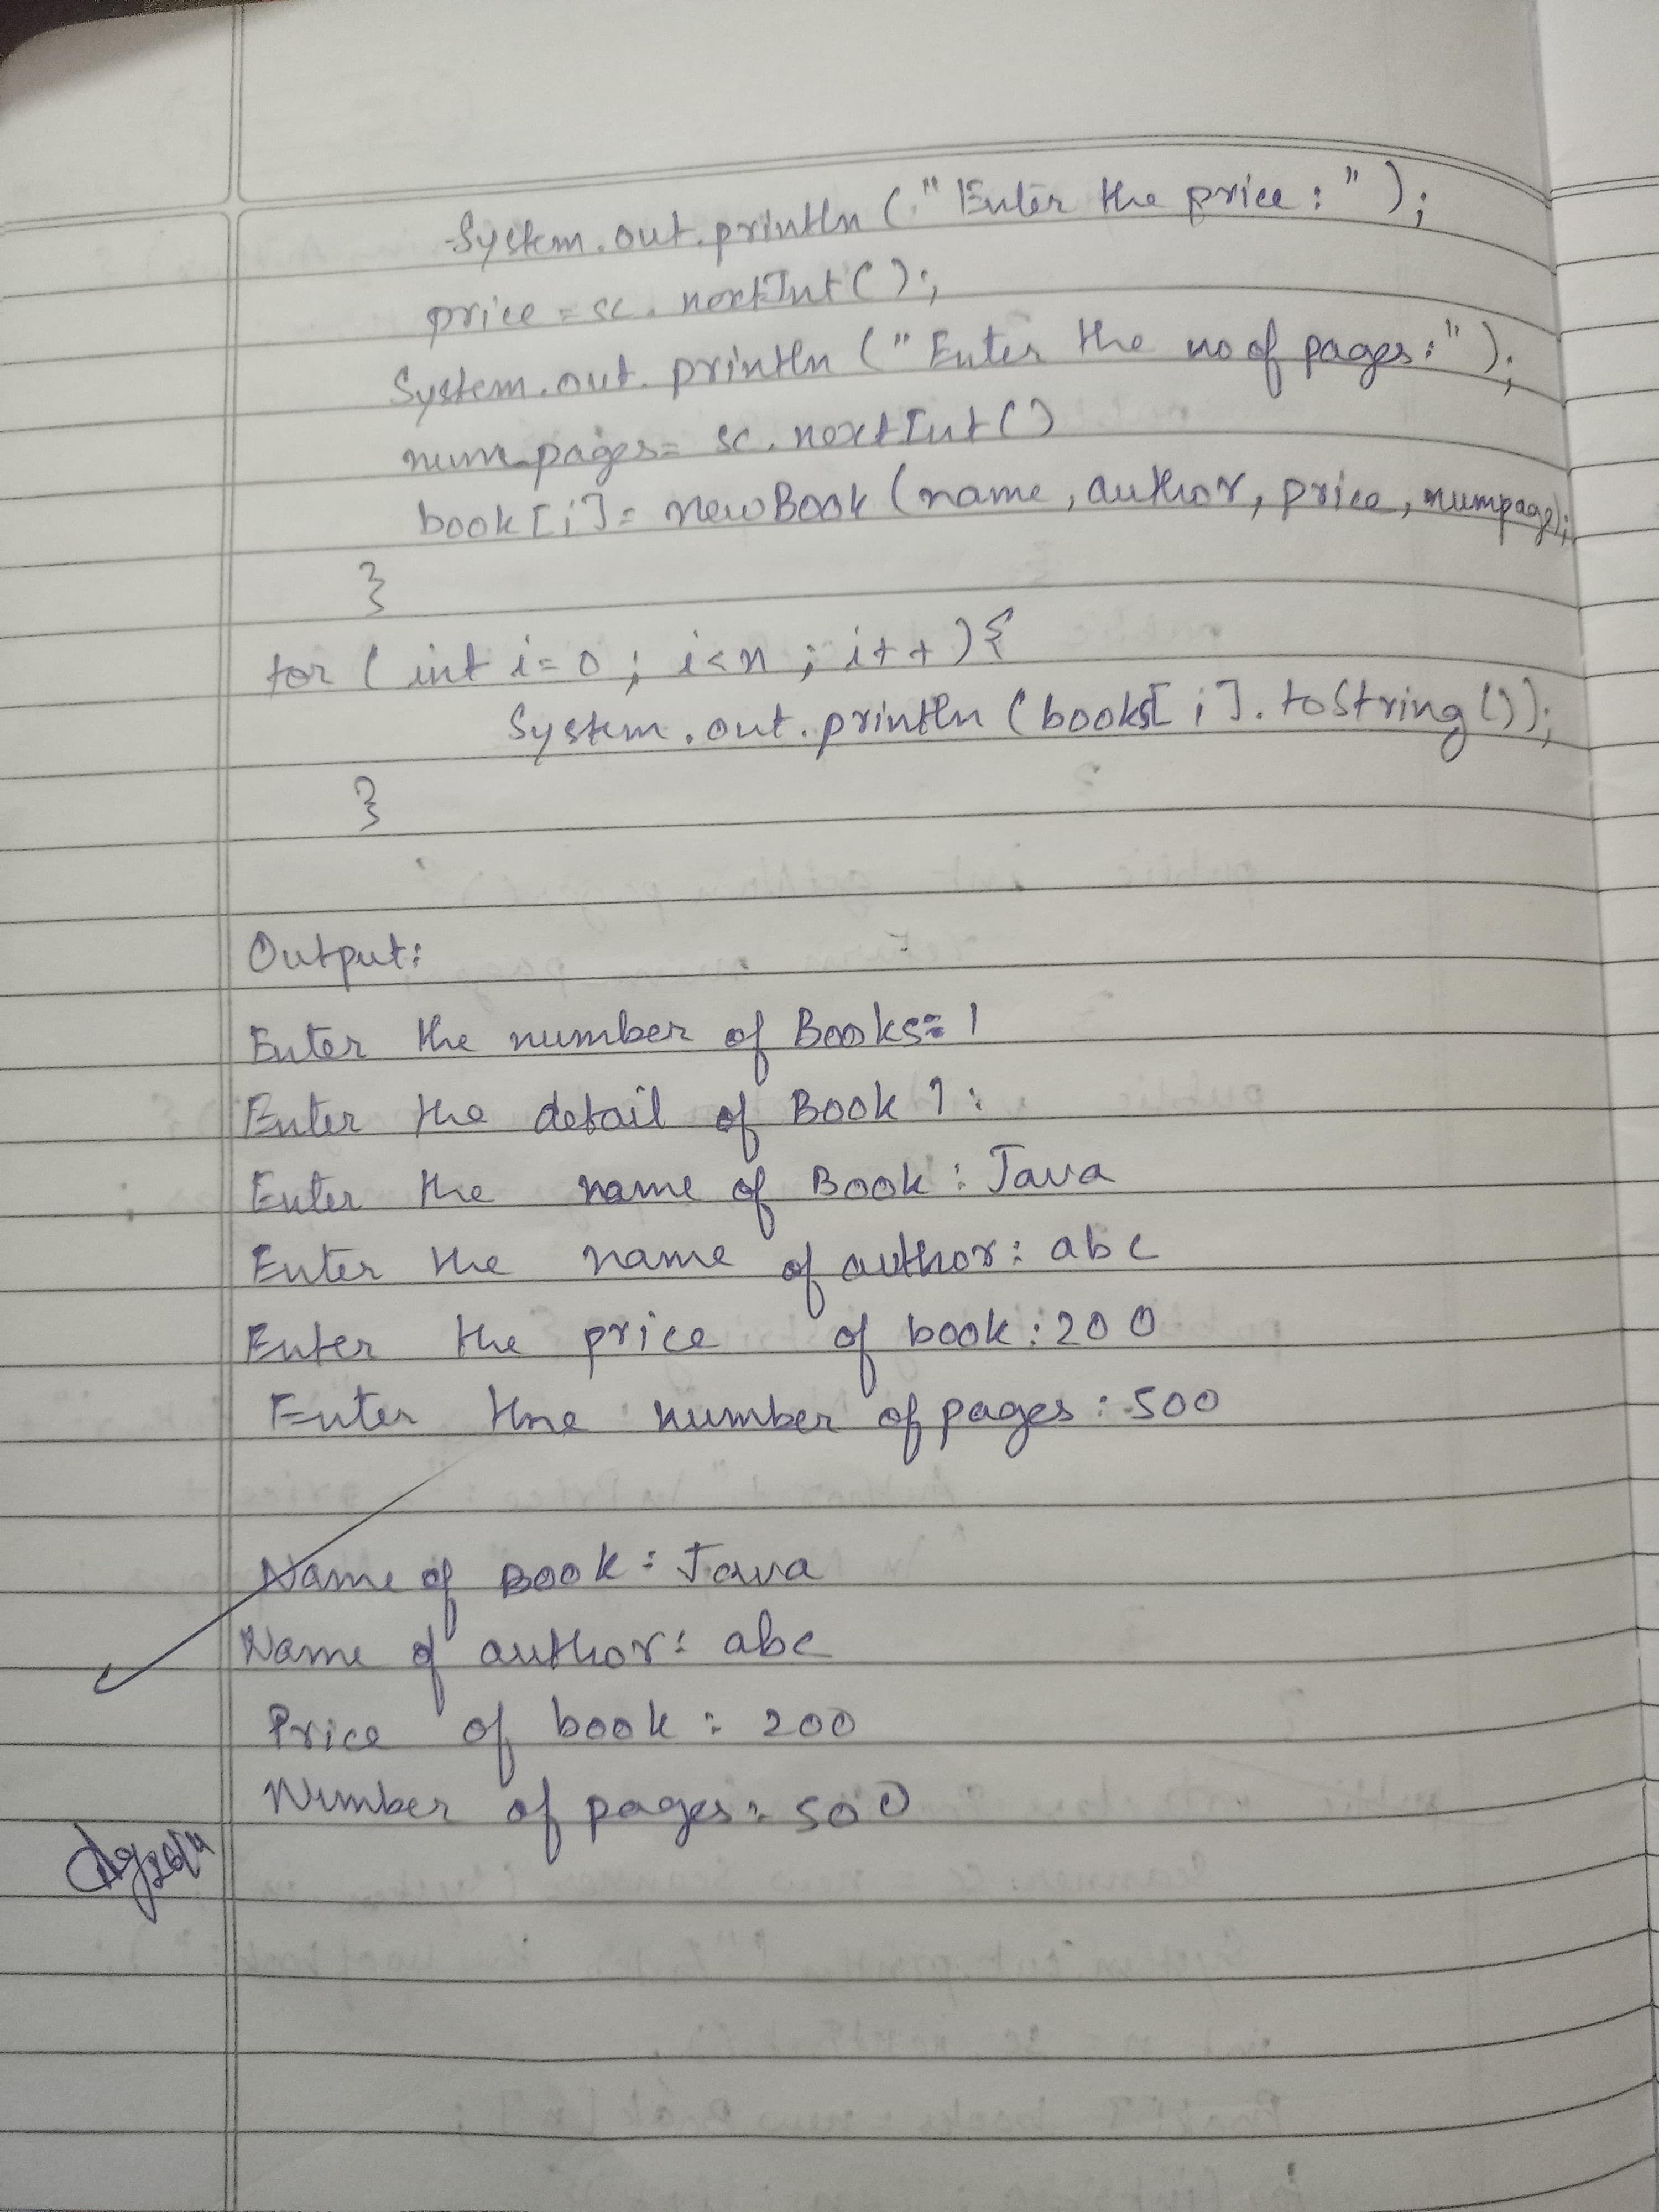 System.out.println ("Enter the price:");
price = sc.nextInt();
System.out.println ("Enter the no of pages:");
num_pages= sc.nextInt()
book[i]= newBook (name, author, price, numpage);
}
for (int i=0; i<n; i++){
System.out.println (books[i].toString());
}
Output:
Enter the number of Books= 1
Enter the detail of Book 1:
Enter the name of Book: Java
Enter the name of author: abc
Enter the price of book: 200
Enter the number of pages: 500
Name of Book: Java
Name of author: abc
Price of book: 200
Number of pages: 500